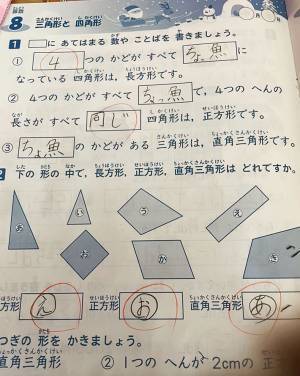 8 三角形と 四角形
さんかくけい しかくけい
1 □に あてはまる 数や ことばを 書きましょう。
① 4つの かどが すべて ちょ魚に
なっている 四角形は、長方形です。
② 4つの かどが すべて ちょっ魚で、4つの へんの
長さが すべて 同じ 四角形は、正方形です。
③ ちょ魚の かどが ある 三角形は、直角三角形です。
下の 形の 中で、長方形、正方形、直角三角形は どれですか。
あ い う え
お か き
方形 え 正方形 お 直角三角形 あ
つぎの 形を かきましょう。
直角三角形 ② 1つの へんが 2cmの 正